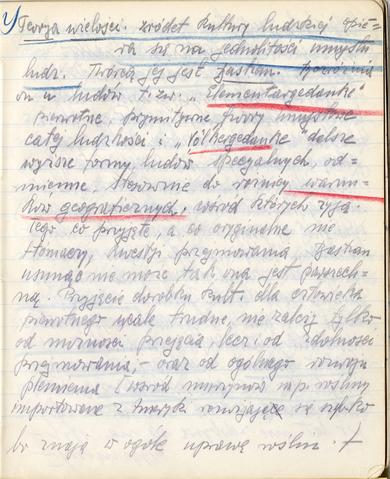 Teorja wielości źródeł kultury ludzkiej opie-
ra się na jednolitości umysłu
ludz. Twórcą jej jest Bastian.
on u ludów t. zw. „Elementargedanke"
pierwotne, prymitywne twory umysłowe
całej ludzkości i „Völkergedanke" dalsze
wyższe formy ludów specjalnych, od-
mienne. Stosownie do różnicy warun-
ków geograficznych, wśród których żyją.
Tego co przyjęte, a co oryginalne nie
tłomaczy, kwestji przejmowania Bastian
usunąć nie może tak ona jest powszech-
na. Przyjęcie dorobku kult. dla człowieka
pierwotnego wcale trudne, nie zależy tylko
od możności przejęcia, lecz i od zdolności
przejmowania, - oraz od ogólnego rozwoju
plemienia (wśród murzynów np. rośliny
importowane z Ameryki rozwijające się szybko
bo mają w ogóle uprawę roślin.